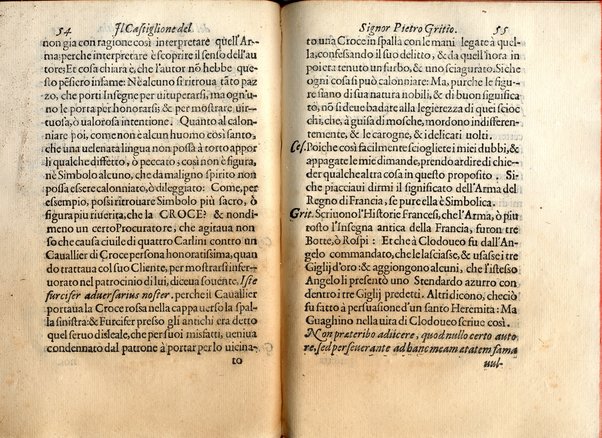 54 Il Castiglione del
non già con ragione così interpretare quell'Ar-
ma: perche interpretare è scoprire il senso dell'au
tore: Et cosa chiara è, che l'autor nō hebbe que-
sto pēsiero infame: Nè alcuno si ritroua tāto paz
zo, che porti Insegne per vituperarsi, ma ogn'u-
no le porta per honorarsi: & per mostrare uir-
tuosa, ò ualorosa intentione. Quanto al calon-
niare poi, come non è alcun huomo così santo,
che una uelenata lingua non possa à torto appor
li qualche diffetto, ò peccato; così non è figura,
nè Simbolo alcuno, che da maligno spirito non
possa essere calonniato, ò dileggiato: Come, per
essempio, possi ritrouare Simbolo più sacro, ò
figura piu riuerita, che la CROCE? & nondi-
meno un certo Procuratore, che agitaua non
sò che causa ciuile di quattro Carlini contro un
Cauallier di Croce persona honoratissima, quan
do trattaua col suo Cliente, per mostrarsi infer-
uorato nel patrocinio di lui, diceua souente. Iste
furcifer aduersarius noster. perche il Cauallier
portaua la Croce rosa nella cappa uerso la spal-
la sinistra: & Furcifer presso gli antichi era detto
quel seruo disleale, che per suoi misfatti, ueniua
condennato dal patrone à portar per lo uicina-
to
Signor Pietro Gritio. 55
to una Croce in spalla con le mani legate a quel-
la, confessando il suo delitto, & da quell'hora in
poi era tenuto un furbo, & uno sciagurato. Si che
ogni cosa si può calonniare: Ma, purche le figu-
re siano di sua natura nobili, & di buon significa
to, non si deue badare alla legierezza di quei scioc
chi, che, à guisa di mosche, mordono indifferen-
temente, & le carogne, & i delicati uolti.
Ces. Poiche così facilmente sciogliete i miei dubbi, &
appagate le mie dimande, prendo ardire di chie-
der qualche altra cosa in questo proposito. Si-
che piacciaui dirmi il significato dell'Arma del
Regno di Francia, se pure ella è Simbolica.
Grit. Scriuono l'Historie Francesi, che l'Arma, ò piu
rosto l'Insegna antica della Francia, furon tre
Botte, ò Rospi: Et che à Clodoueo fu dall'An-
gelo commandato, che le lasciasse, & usasse i tre
Giglij d'oro: & aggiongono alcuni, che l'istesso
Angelo li presentò uno Stendardo azurro con
dentro i tre Giglij predetti. Altri dicono, che ciò
fu fatto à persuasione d'un santo Heremita: Ma
Guaghino nella uita di Clodoueo scriue così.
Non præteribo adiicere, quod nullo certo auto
re, sed perseuerante ad hanc meam ætatem fama
uul-